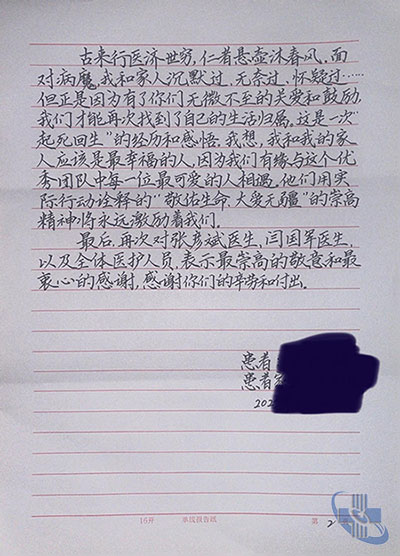 古来行医济世穷，仁者悬壶沐春风。面
对病魔，我和家人沉默过、无奈过、怀疑过……
但正是因为有了你们无微不至的关爱和鼓励，
我们才能再次找到了自己的生活归属，这是一次"
起死回生"的经历和感悟。我想，我和我的家
人应该是最幸福的人，因为我们有缘与这个优
秀团队中每一位最可爱的人相遇。他们用实
际行动诠释的"敬佑生命 大爱无疆"的崇高
精神，将永远激励着我们。
最后，再次对张彦斌医生，闫国军医生，
以及全体医护人员，表示最崇高的敬意和最
衷心的感谢，感谢你们的辛劳和付出。
患者
患者
202
16开 单线报告纸 第 2